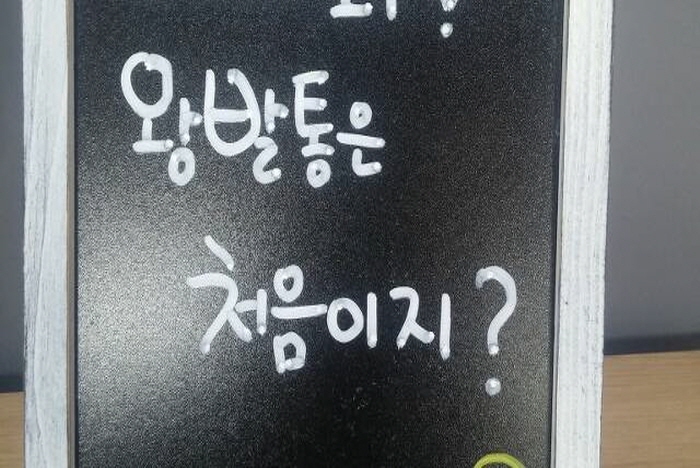 왕발통은
처음이지?